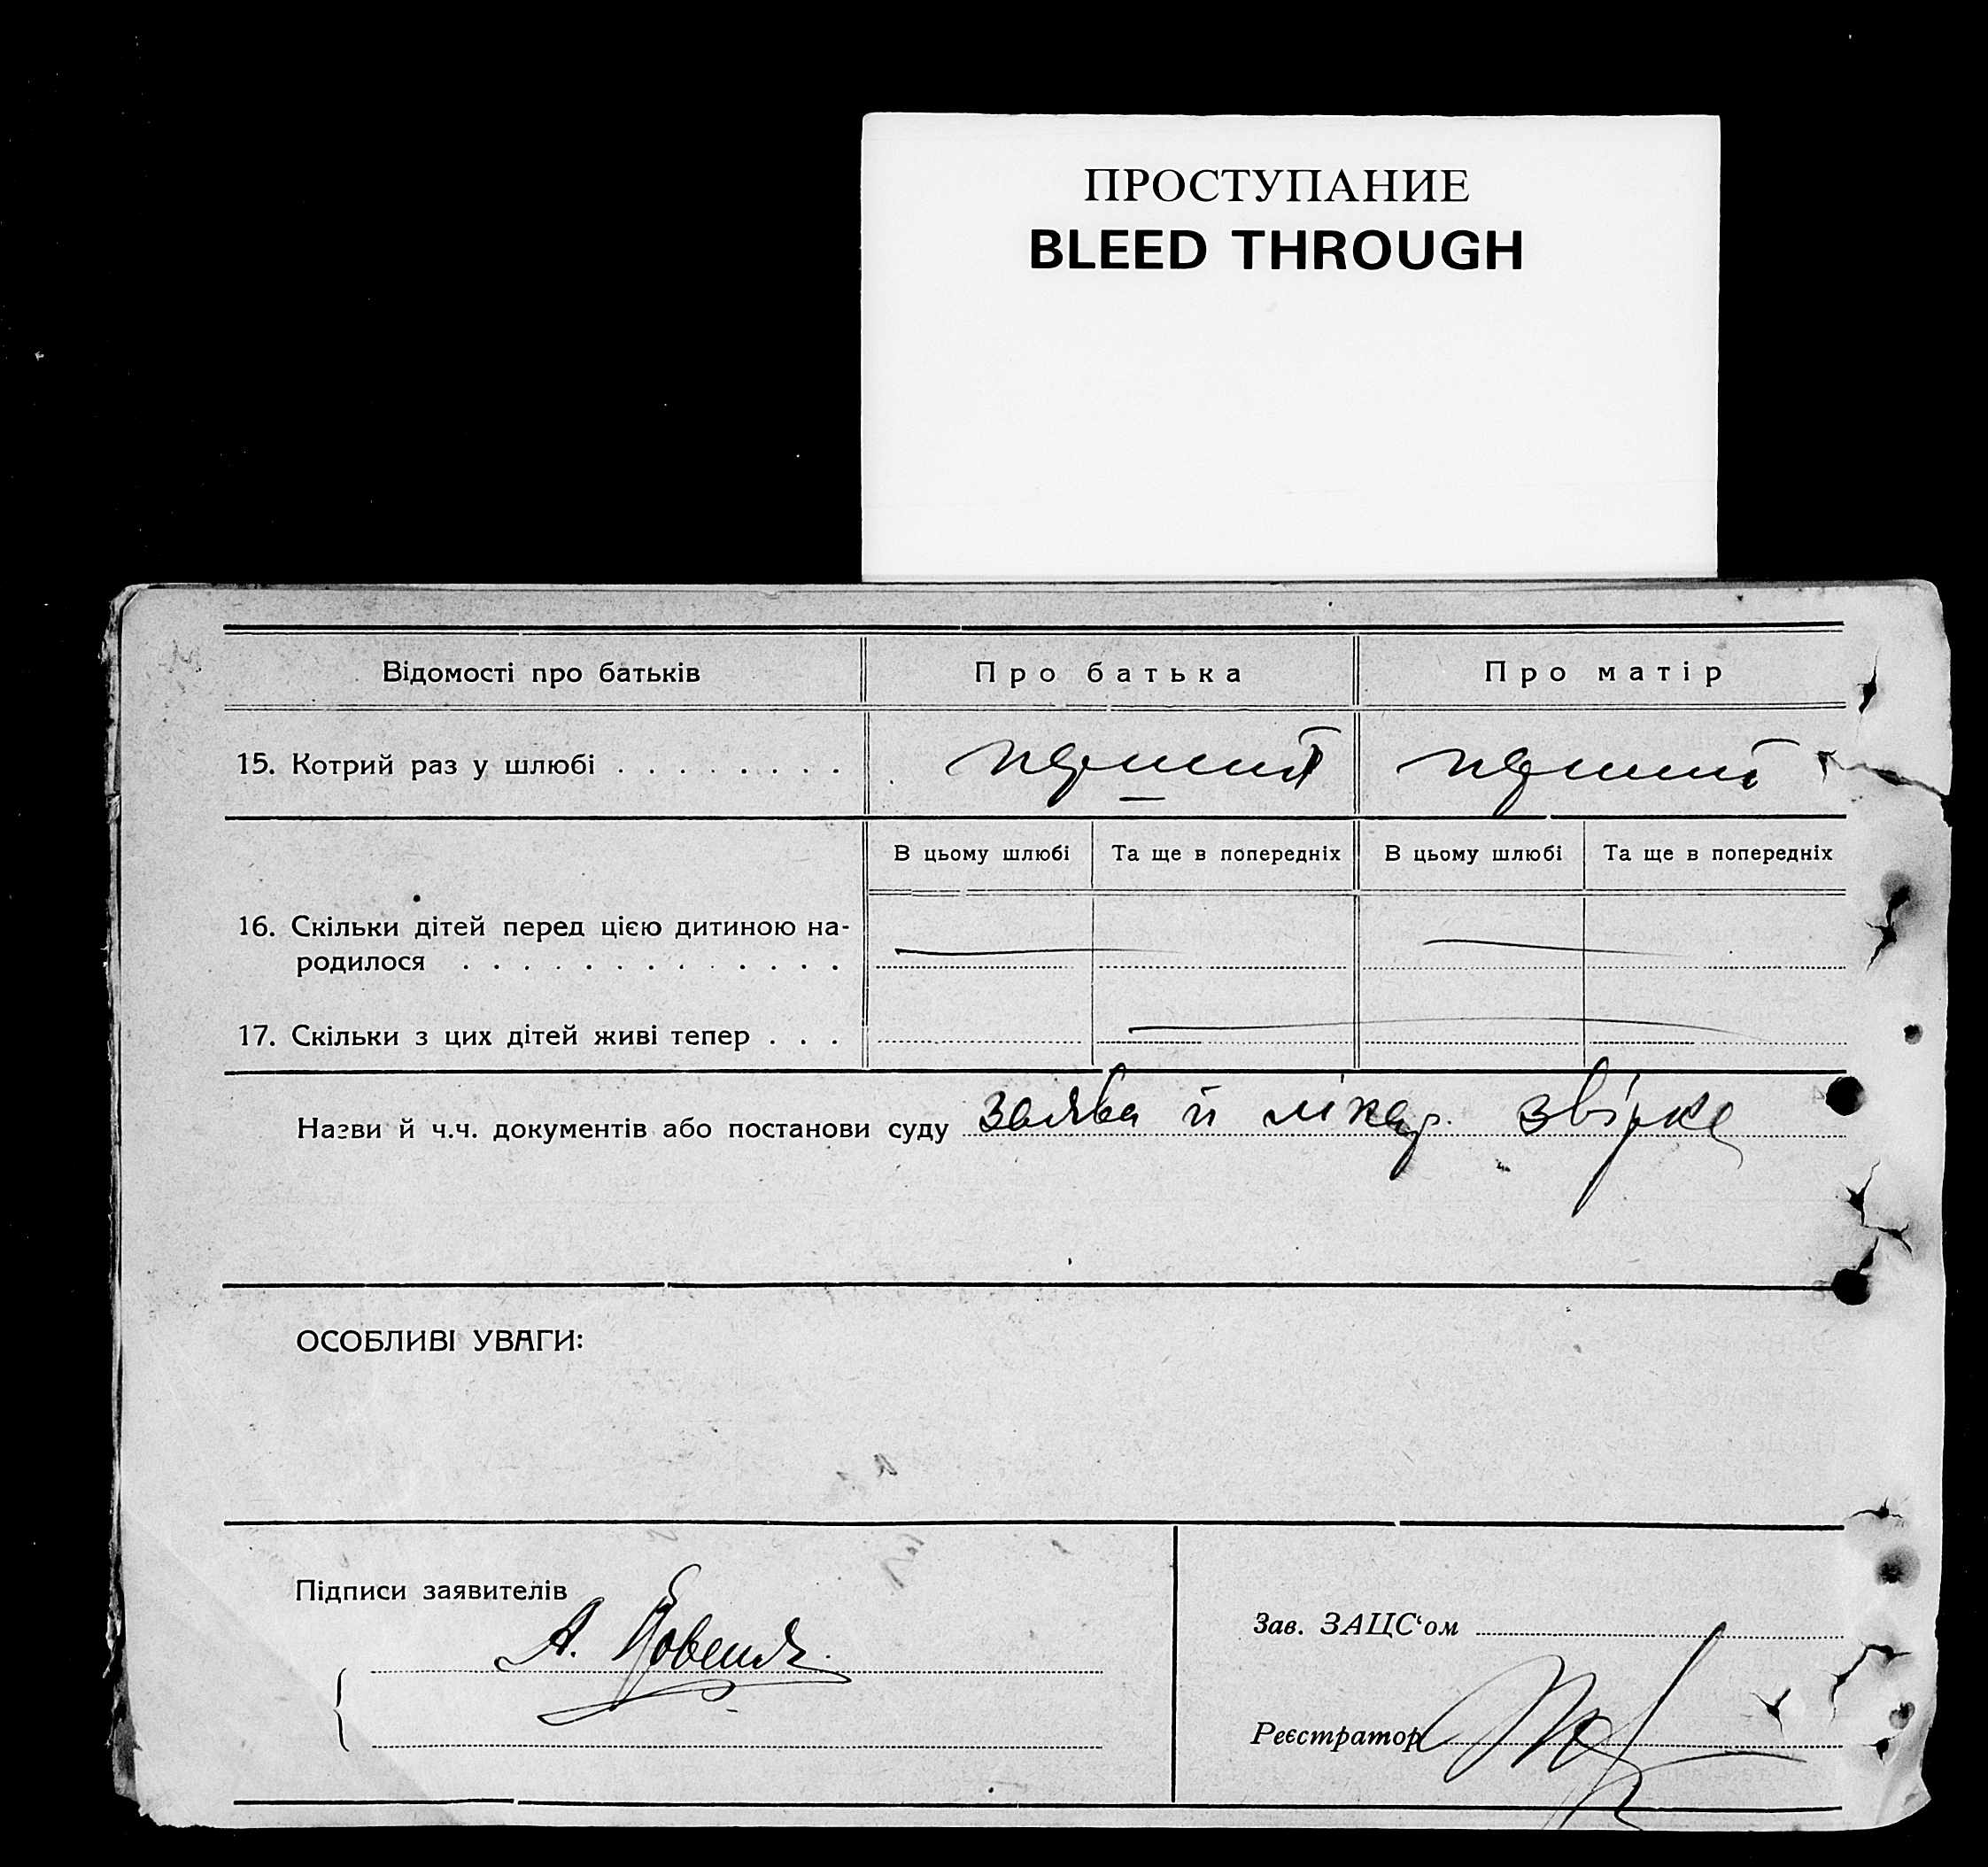 ПРОСТУПАНИЕ
BLEED THROUGH
Відомості про батьків Про батька Про матір
15. Котрий раз у шлюбі . . . . . . . . перший перший
В цьому шлюбі Та ще в попередніх В цьому шлюбі Та ще в попередніх
16. Скільки дітей перед цією дитиною на-
родилося . . . . . . . . . . . . .
17. Скільки з цих дітей живі тепер . . .
Назви й ч.ч. документів або постанови суду заява й лікар. звірка
ОСОБЛИВІ УВАГИ:
Підписи заявителів
А.
Зав. ЗАЦС‘ом
Реєстратор